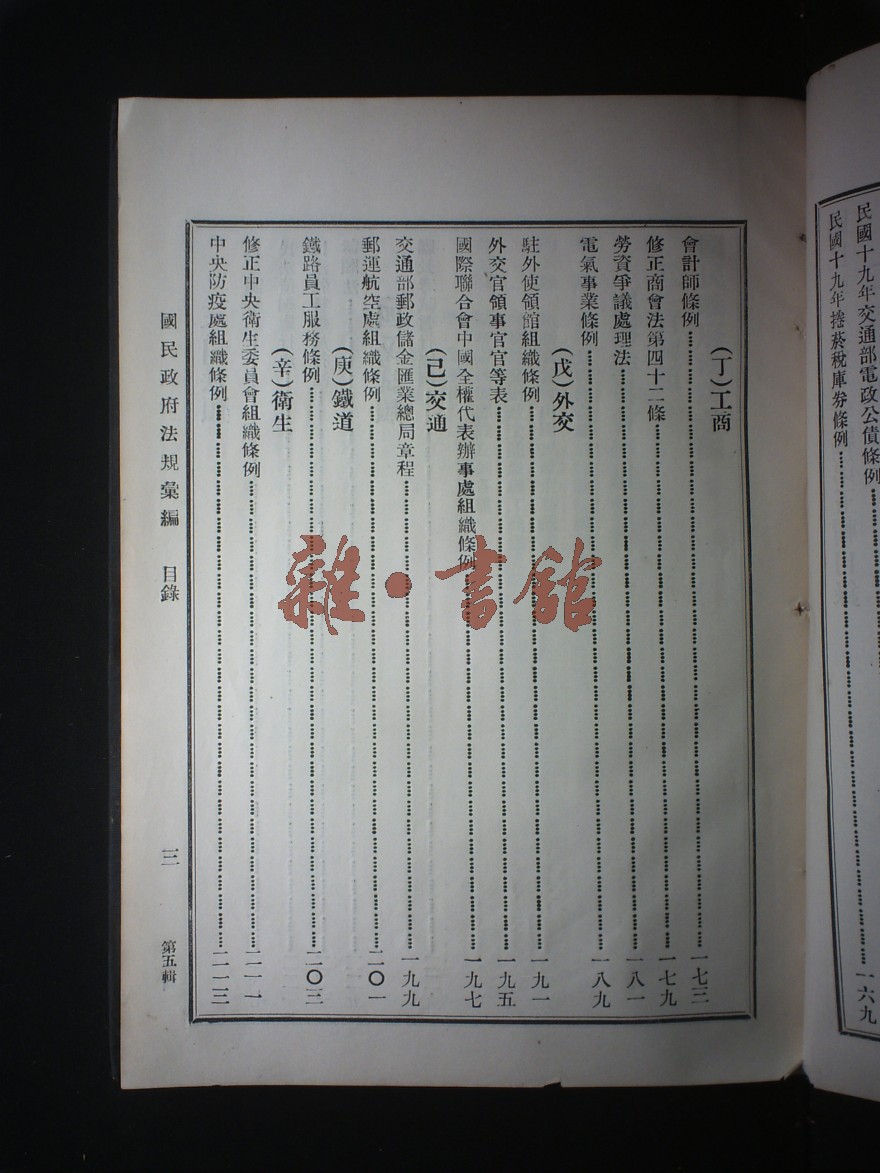 民國十九年交通部電政公債條例……一六九
民國十九年捲菸稅庫券條例……
(丁)工商
會計師條例……一七三
修正商會法第四十二條……一七九
勞資爭議處理法……一八一
電氣事業條例……一八九
(戊)外交
駐外使領館組織條例……一九一
外交官領事官官等表……一九五
國際聯合會中國全權代表辦事處組織條例……一九七
(己)交通
交通部郵政儲金匯業總局章程……一九九
郵運航空處組織條例……二〇一
(庚)鐵道
鐵路員工服務條例……二〇三
(辛)衛生
修正中央衛生委員會組織條例……二一一
中央防疫處組織條例……二一三
國民政府法規彙編 目錄 三 第五輯
雜·書館